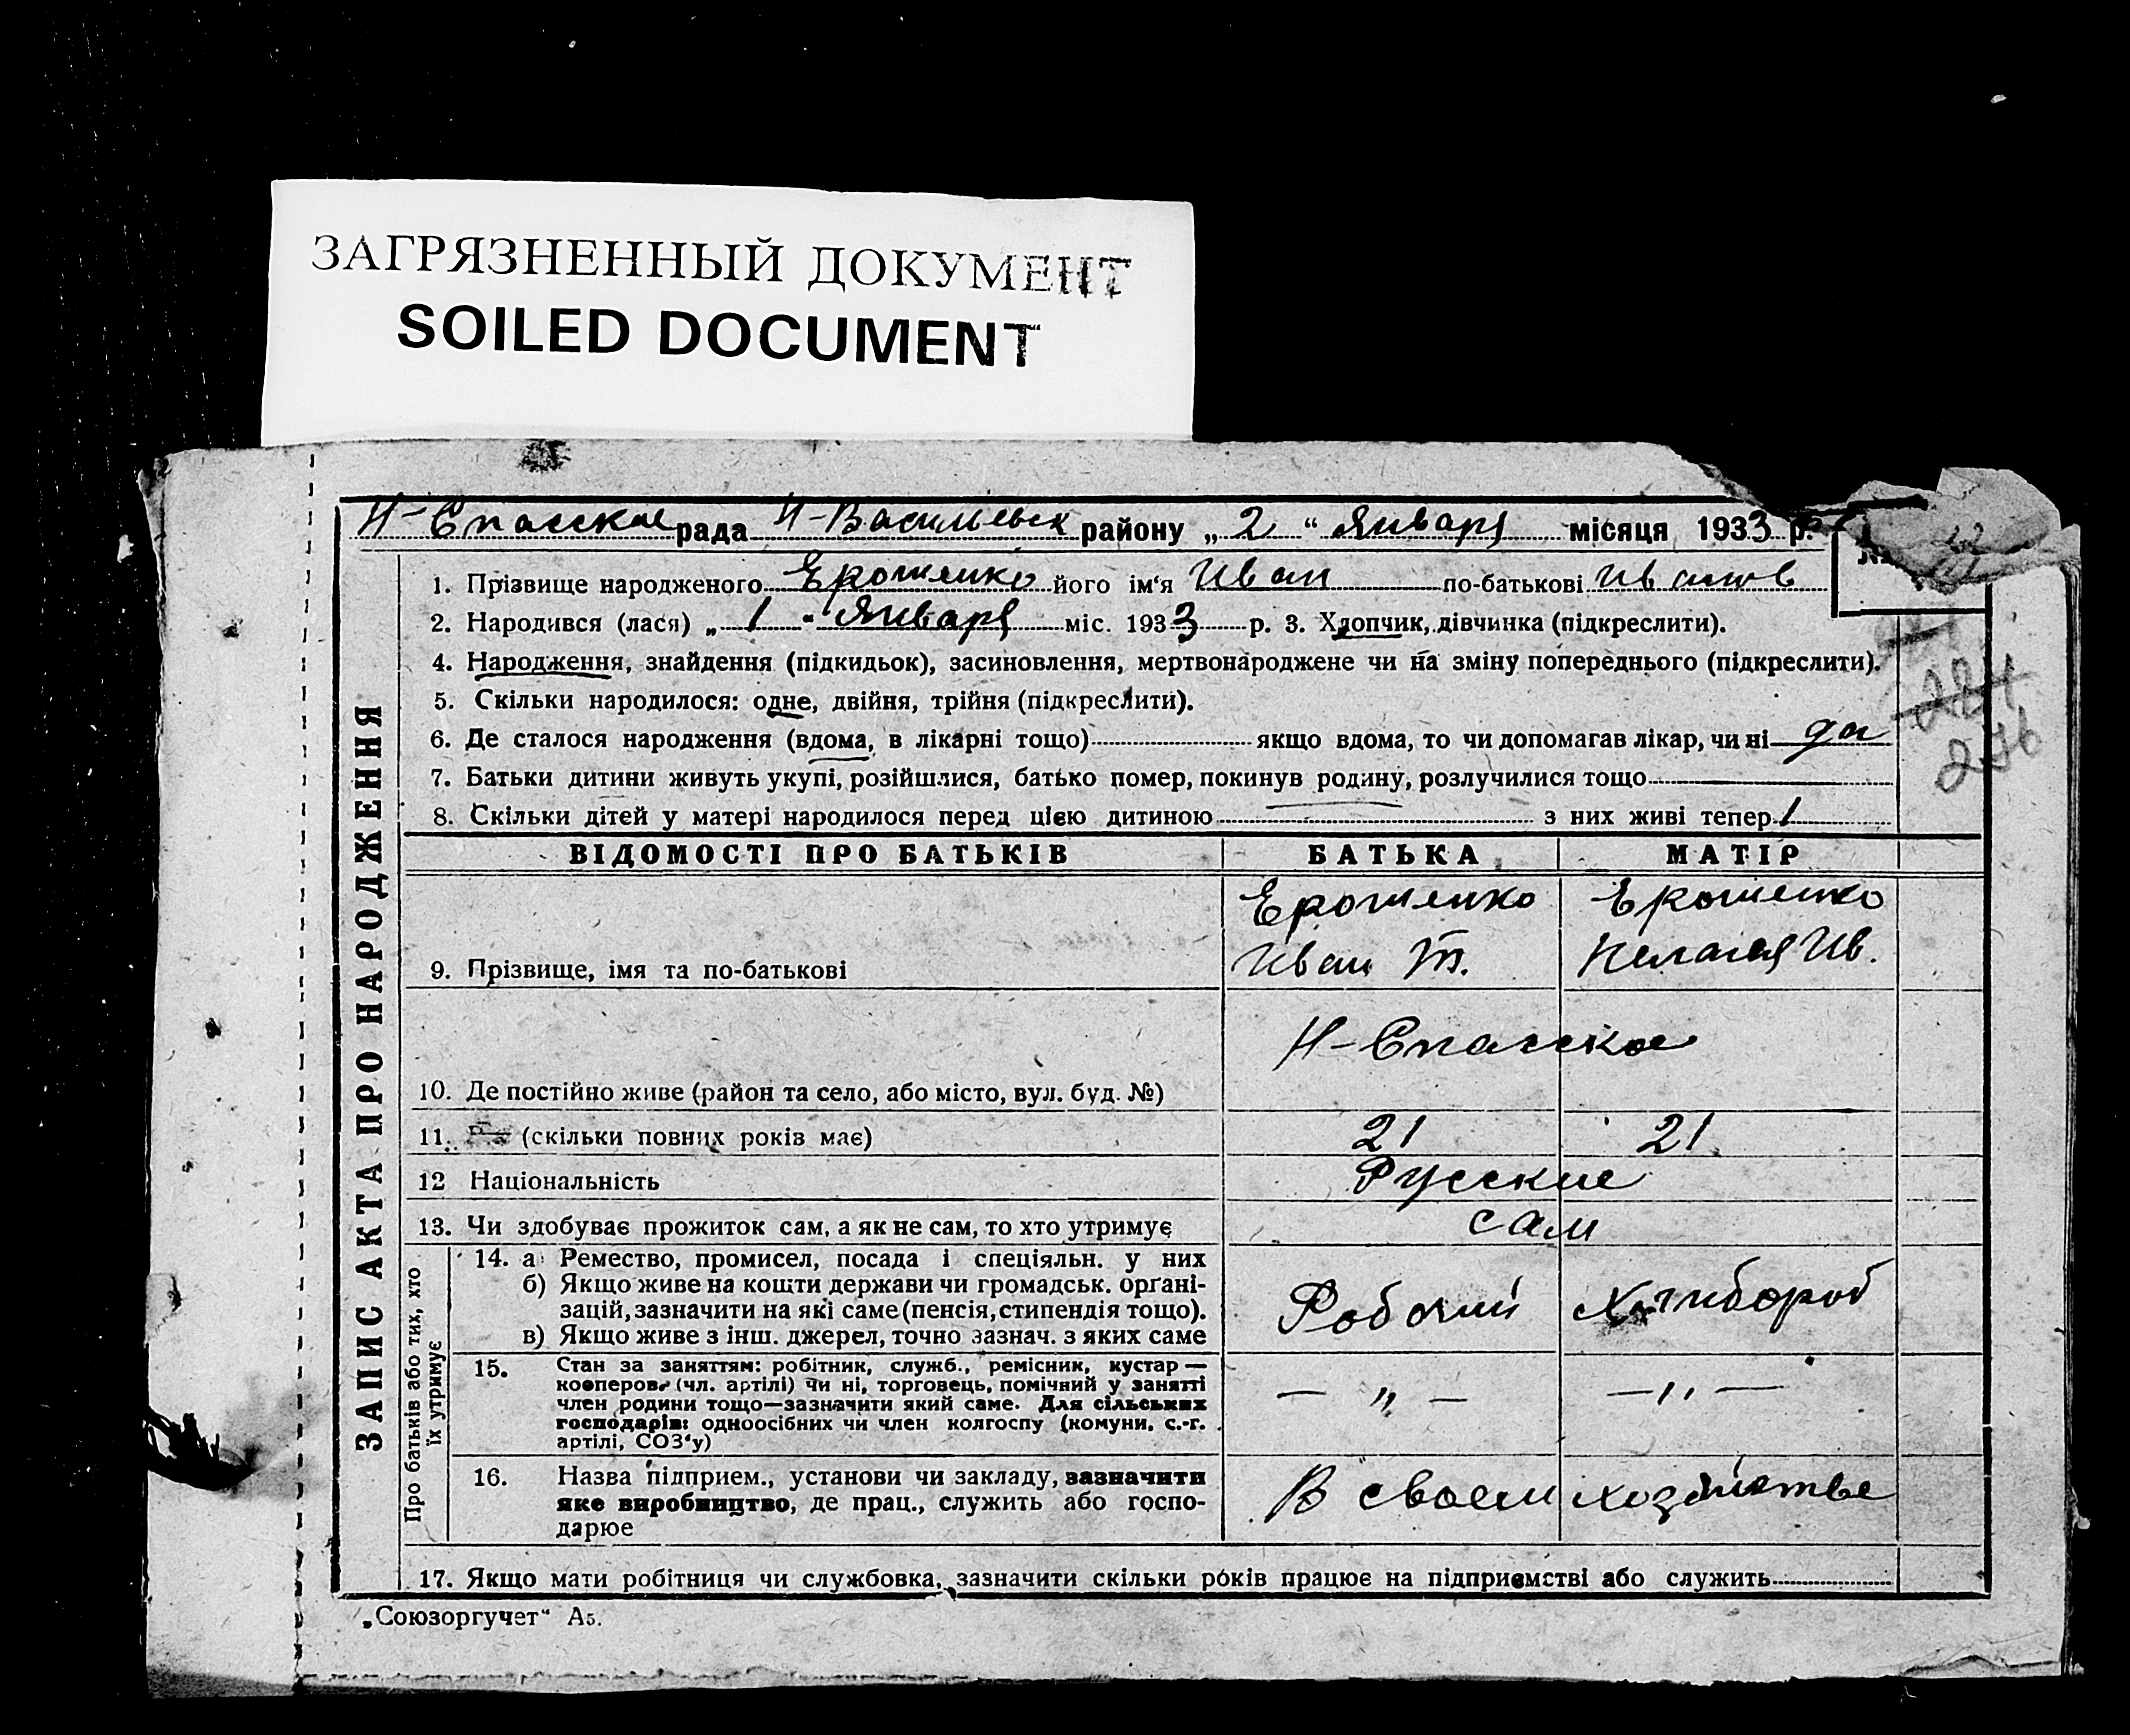 ЗАГРЯЗНЕННЫЙ ДОКУМЕНТ
SOILED DOCUMENT
Н-Спасское рада Н-Васильевск району „2“ Января місяця 1933 р.
1. Прізвище народженого Ерошенко його ім‘я Иван по-батькові Иванов
2. Народився (лася) „1“ Января міс. 1933 р. 3. Хлопчик, дівчинка (підкреслити).
4. Народження, знайдення (підкидьок), засиновлення, мертвонароджене чи на зміну попереднього (підкреслити).
224
5. Скільки народилося: одне, двійня, трійня (підкреслити).
6. Де сталося народження (вдома, в лікарні тощо) якщо вдома, то чи допомагав лікар, чи ні да
236
7. Батьки дитини живуть укупі, розійшлися, батько помер, покинув родину, розлучилися тощо
8. Скільки дітей у матері народилося перед цією дитиною — з них живі тепер 1
ЗАПИС АКТА ПРО НАРОДЖЕННЯ
ВІДОМОСТІ ПРО БАТЬКІВ БАТЬКА МАТІР
Ерошенко Ерошенко
9. Прізвище, імя та по-батькові Иван Т. Пелагея Ив.
Н-Спасское
10. Де постійно живе (район та село, або місто, вул. буд. №)
11. (скільки повних років має) 21 21
12 Національність Русские
13. Чи здобуває прожиток сам, а як не сам, то хто утримує сам
Про батьків або тих, хто їх утримує
14. а Ремество, промисел, посада і спеціяльн. у них
б) Якщо живе на кошти держави чи громадськ. орґані-
зацій, зазначити на які саме (пенсія, стипендія тощо). Рабочий Хлибороб
в) Якщо живе з інш. джерел, точно зазнач. з яких саме
15. Стан за заняттям: робітник, служб., ремісник, кустар —
кооперов. (чл. артілі) чи ні, торговець, помічний у занятті
член родини тощо—зазначити який саме. Для сільських — „ — — „ —
господарів: одноосібних чи член колгоспу (комуни, с.-г.
артілі, СОЗ‘у)
16. Назва підприєм., установи чи закладу, зазначити
яке виробництво, де прац., служить або госпо- В своем хозяйстве
дарює
17. Якщо мати робітниця чи службовка, зазначити скільки років працює на підприємстві або служить
„Союзоргучет“ А5.